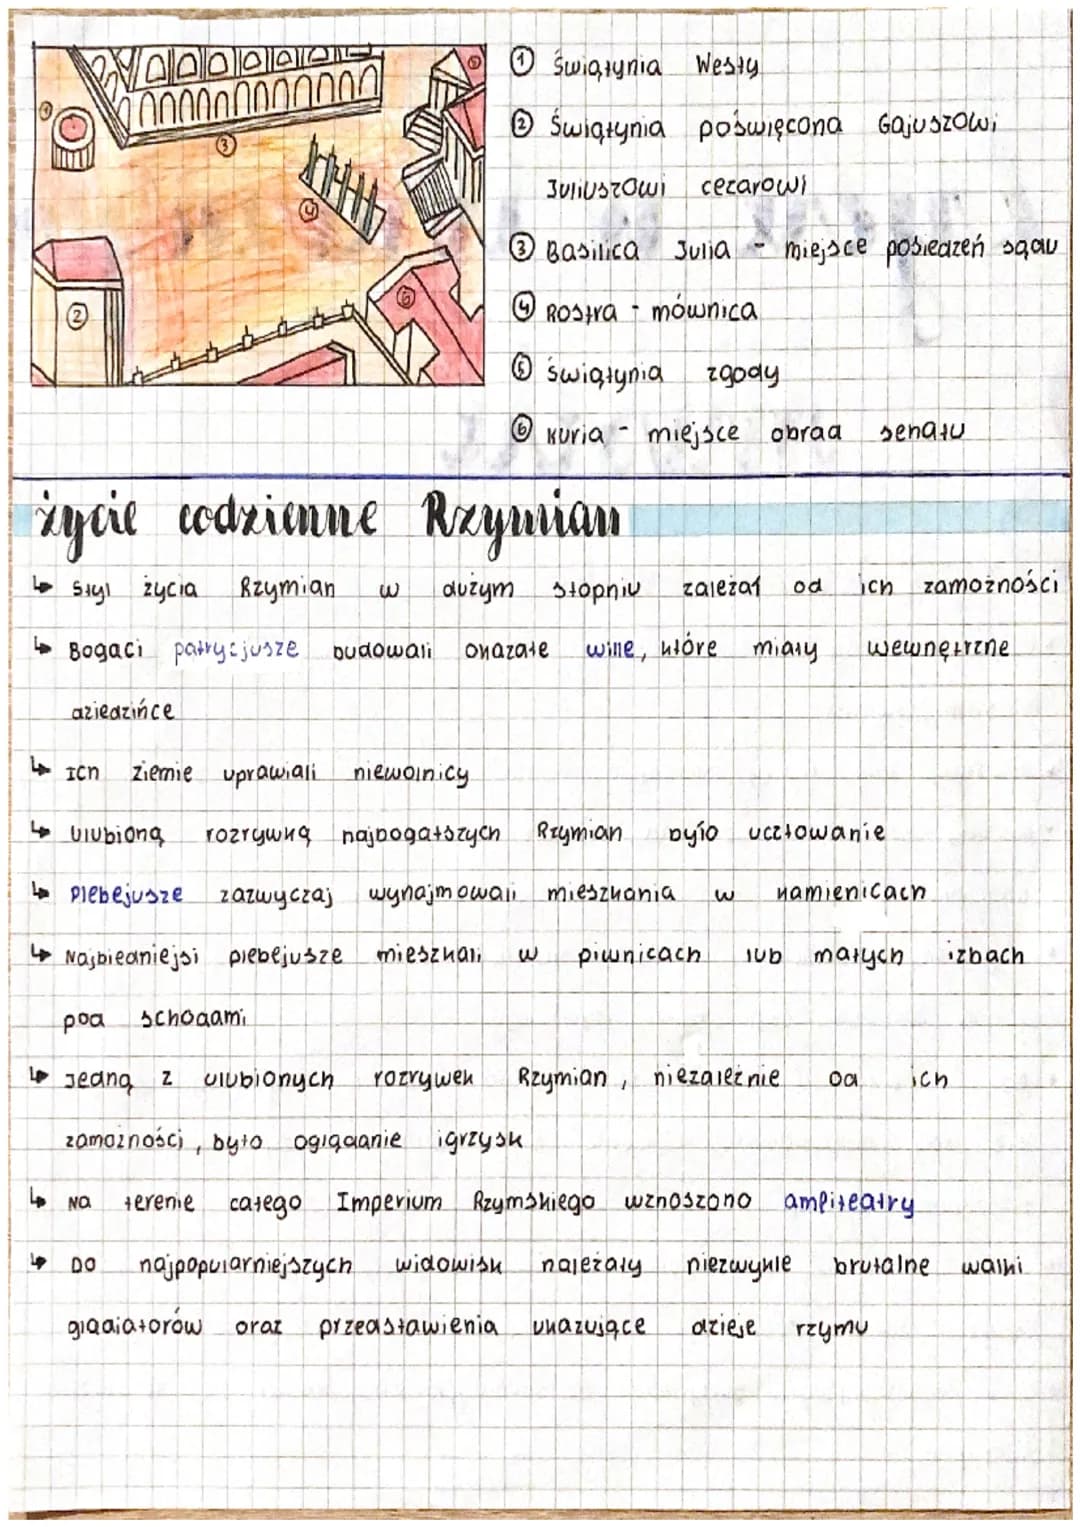 ① Świątynia Westy
② Świątynia poświęcona Gajuszowi
Juliuszowi cezarowi
③ Basilica Julia - miejsce posiedzeń sądu
④ Rostra - mównica
⑤ świątynia zgody
⑥ kuria - miejsce obrad senatu
życie codzienne Rzymian
↳ Styl życia Rzymian w dużym stopniu zależał od ich zamożności
↳ Bogaci patrycjusze budowali okazałe wille, które miały wewnętrzne
dziedzińce
↳ Ich ziemie uprawiali niewolnicy
↳ Ulubioną rozrywką najbogatszych Rzymian było ucztowanie
↳ Plebejusze zazwyczaj wynajmowali mieszkania w kamienicach
↳ Najbiedniejsi plebejusze mieszkali w piwnicach lub małych izbach
pod schodami
↳ Jedną z ulubionych rozrywek Rzymian, niezależnie od ich
zamożności, było oglądanie igrzysk
↳ Na terenie całego Imperium Rzymskiego wznoszono amfiteatry
↳ Do najpopularniejszych widowisk należały niezwykle brutalne walki
gladiatorów oraz przedstawienia ukazujące dzieje rzymu
① ② ③ ④ ⑤ ⑥